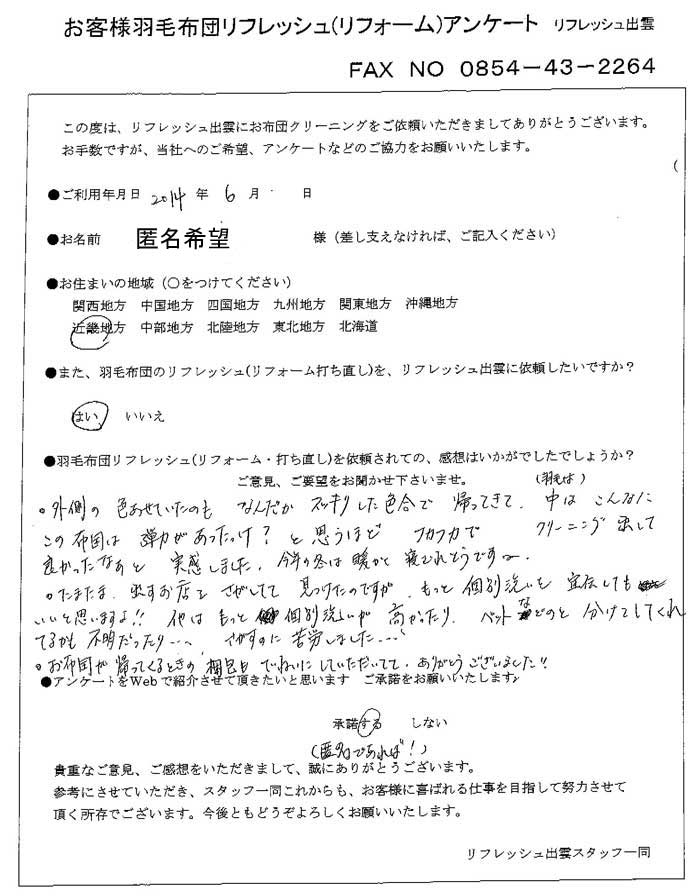 お客様羽毛布団リフレッシュ(リフォーム)アンケート リフレッシュ出雲
FAX NO 0854-43-2264
この度は、リフレッシュ出雲にお布団クリーニングをご依頼いただきましてありがとうございます。
お手数ですが、当社へのご希望、アンケートなどのご協力をお願いいたします。
●ご利用年月日 2014 年 6 月 日
●お名前 匿名希望 様（差し支えなければ、ご記入ください）
●お住まいの地域（○をつけてください）
関西地方 中国地方 四国地方 九州地方 関東地方 沖縄地方
近畿地方 中部地方 北陸地方 東北地方 北海道
●また、羽毛布団のリフレッシュ(リフォーム打ち直し)を、リフレッシュ出雲に依頼したいですか？
はい いいえ
●羽毛布団リフレッシュ(リフォーム・打ち直し)を依頼されての、感想はいかがでしたでしょうか？
ご意見、ご要望をお聞かせ下さいませ。
(羽毛は)
○外側の色あせていたのも なんだか スッキリした色合で 帰ってきて、中は こんなに
この布団は 弾力があったっけ？と思うほど フカフカで クリーニング出して
良かったなぁと 実感しました。今年の冬は暖かく寝れそうです〜
○たまたま、出すお店を さがしてて 見つけたのですが、もっと個別洗いを 宣伝しても
いいと思いますよ!! 他は もっと 個別洗いが 高かったり、ペットなどのと 分けてしてくれ
てるかも 不明だったり…、さがすのに 苦労しました…
○お布団が 帰ってくるときの 梱包も ていねいに していただいてて、ありがとうございました!!
●アンケートをWebで紹介させて頂きたいと思います ご承諾をお願いいたします。
承諾する しない
(匿名であれば！)
貴重なご意見、ご感想をいただきまして、誠にありがとうございます。
参考にさせていただき、スタッフ一同これからも、お客様に喜ばれる仕事を目指して努力させて
頂く所存でございます。今後ともどうぞよろしくお願いいたします。
リフレッシュ出雲スタッフ一同